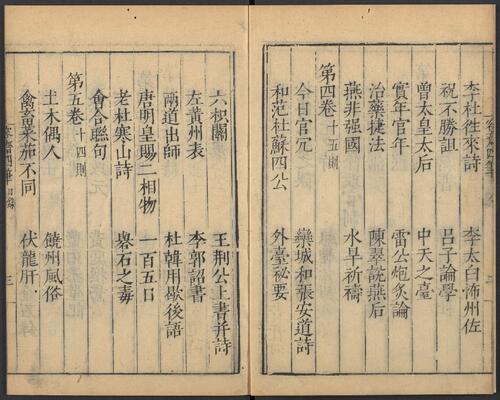 李杜徃來詩 李太白怖州佐
祝不勝詛 呂子論學
曾太皇太后 中天之臺
實年官年 雷公炮炙論
治藥捷法 陳翠說燕后
燕非强國 水旱祈禱
第四卷十五則
今日官冗 欒城和張安道詩
和范杜蘇四公 外臺祕要
六枳關 王荊公上書并詩
左黃州表 李郭詔書
兩道出師 杜韓用歇後語
唐明皇賜二相物 一百五日
老杜寒山詩 礜石之毒
會合聯句
第五卷十四則
土木偶人 饒州風俗
禽畜菜茄不同 伏龍肝
容齋四筆 目錄 三